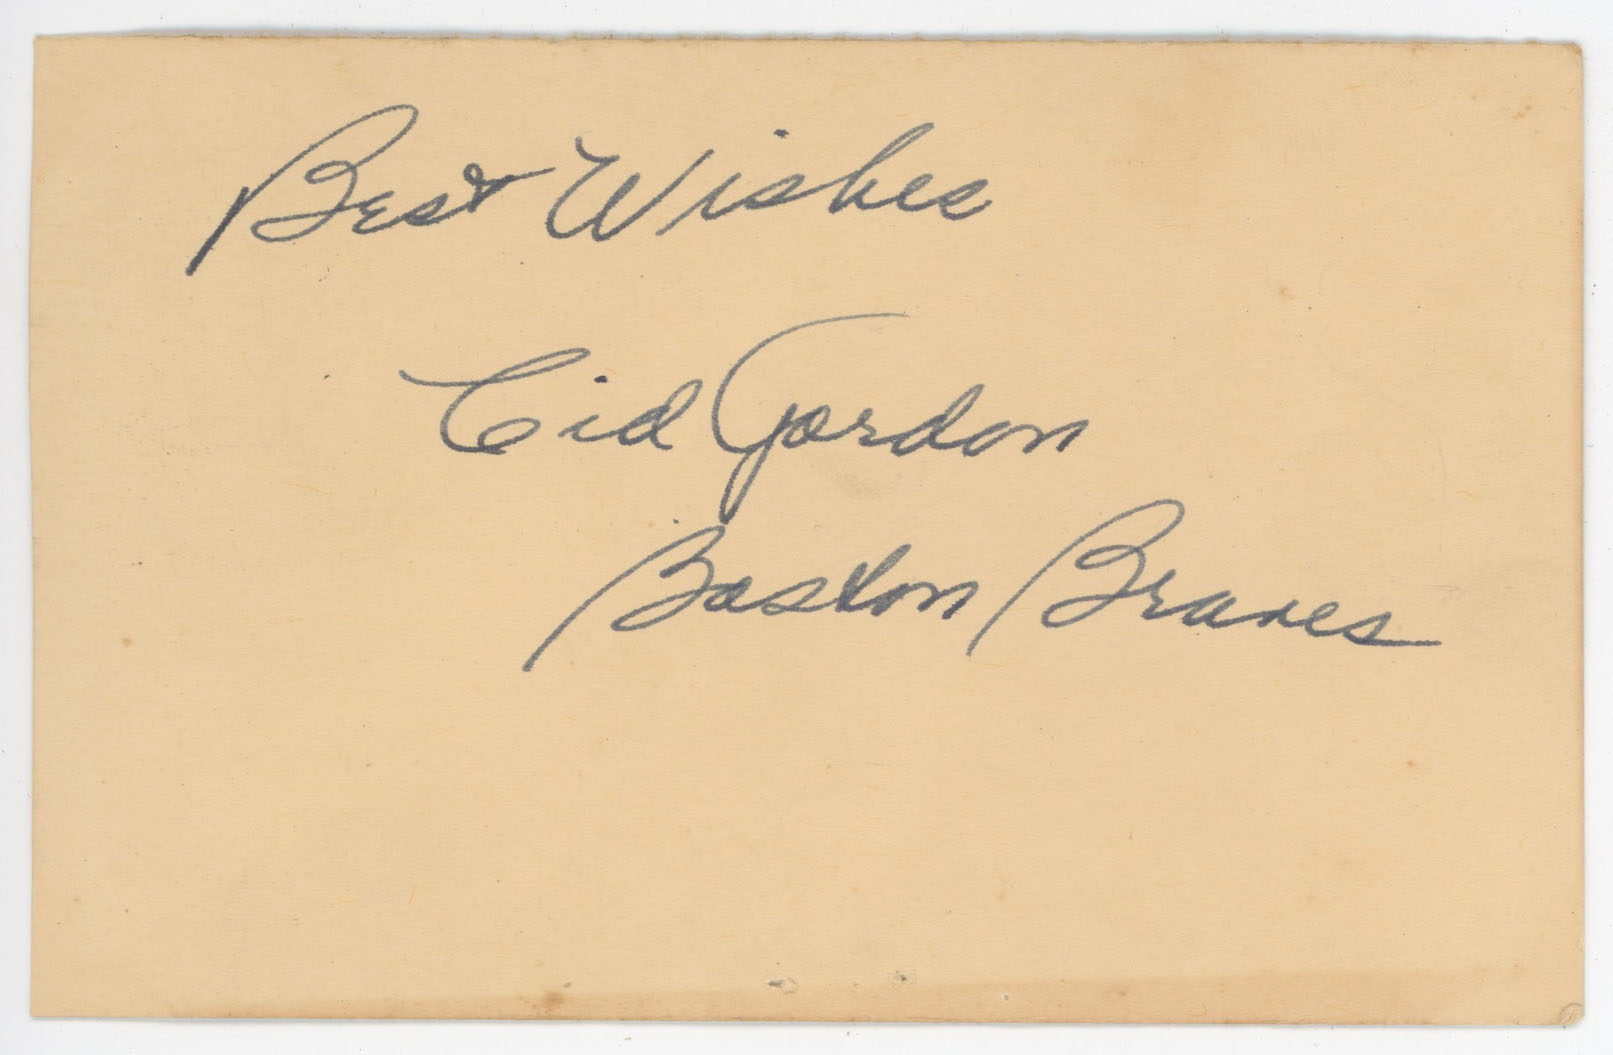 Best Wishes
Cid Gordon
Boston Braves